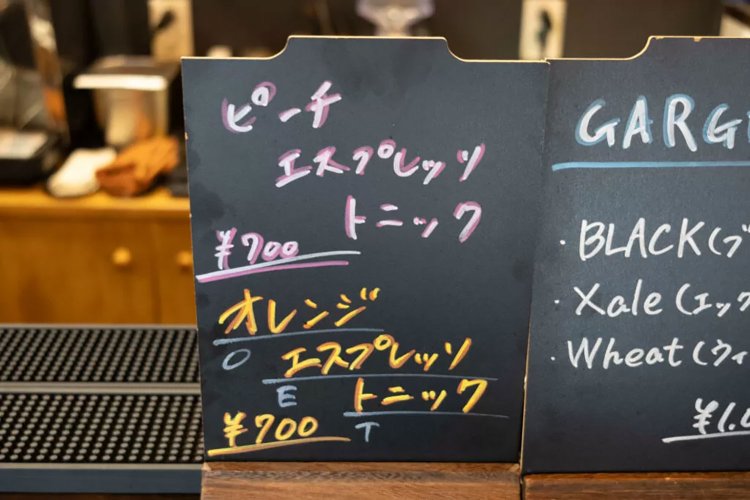 ピーチ
エスプレッソ
トニック
¥700
オレンジ
O
エスプレッソ
E
トニック
T
¥700
GARG
・BLACK(ブ
・Xale(エック
・Wheat(ウィ
¥1.0